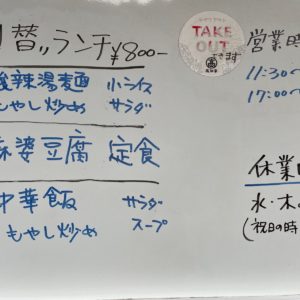 替ランチ ¥800-
酸辣湯麺 小ライス
もやし炒め サラダ
麻婆豆腐 定食
中華飯 サラダ
もやし炒め スープ
TAKE
OUT
できます
営業時
11:30〜
17:00〜
休業日
水・木
(祝日の時